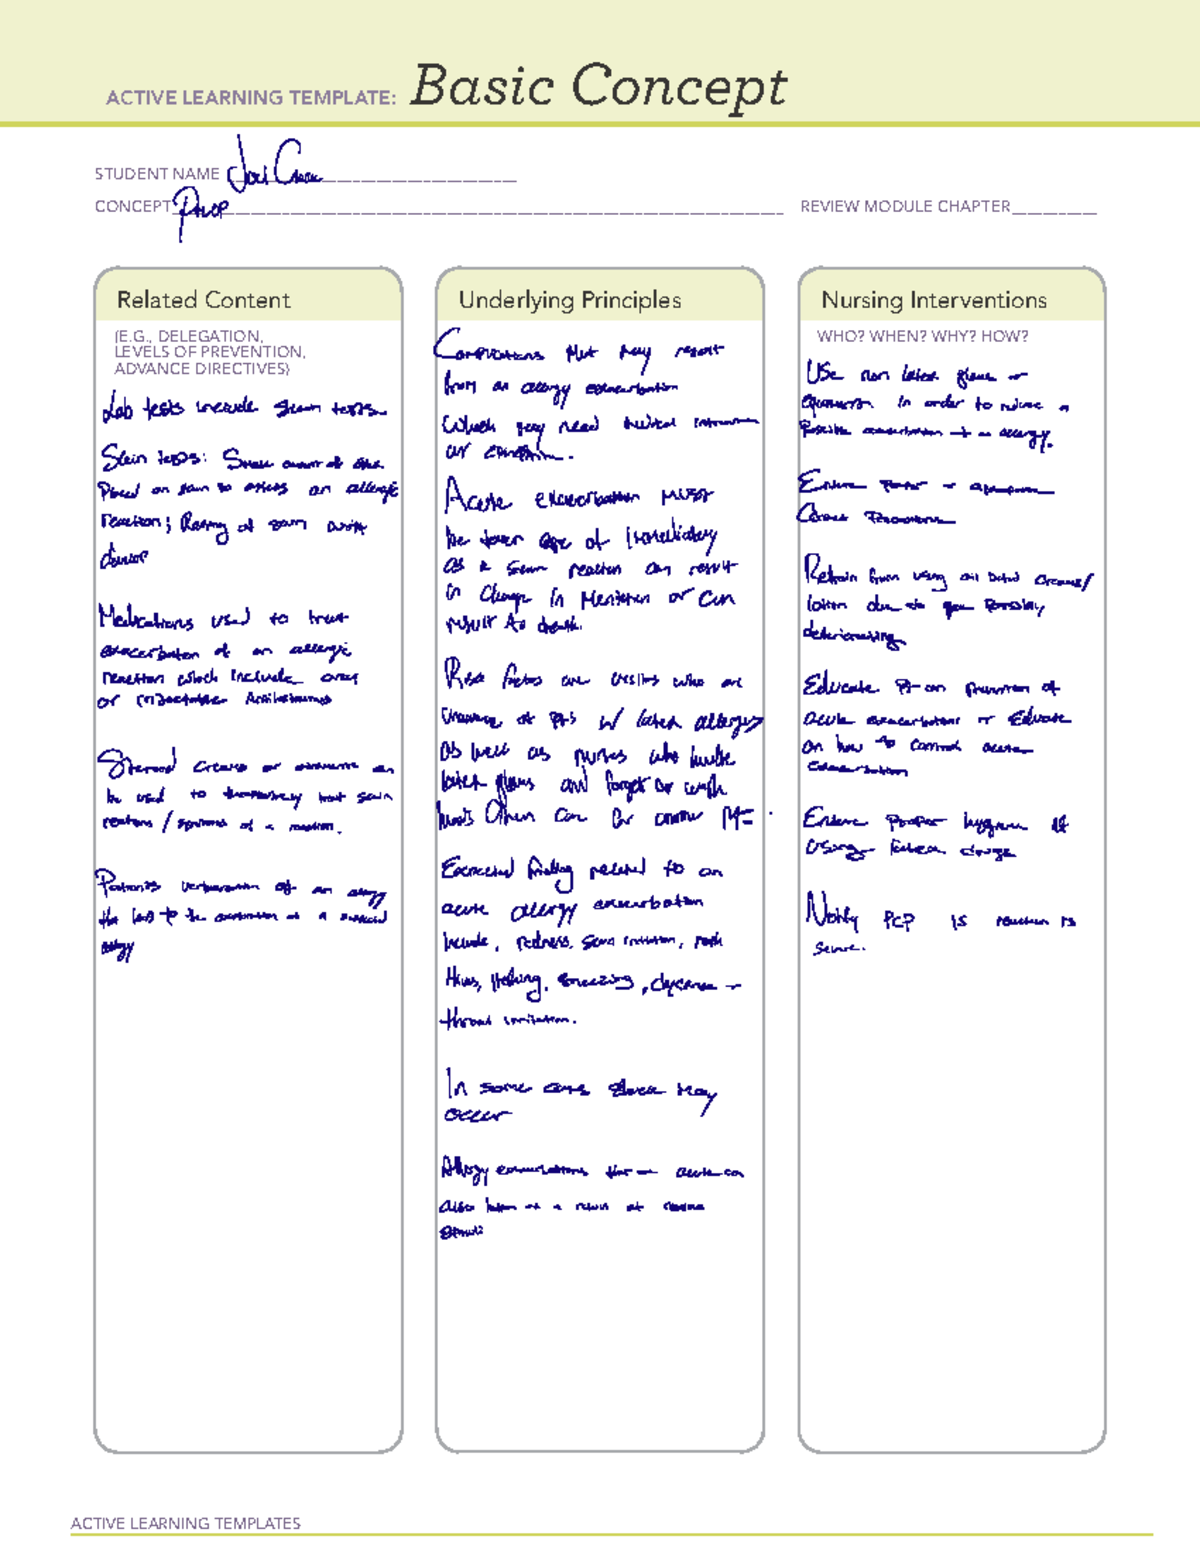 ACTIVE LEARNING TEMPLATE: Basic Concept
STUDENT NAME
CONCEPT
REVIEW MODULE CHAPTER
Related Content
(E.G., DELEGATION,
LEVELS OF PREVENTION,
ADVANCE DIRECTIVES)
Lab tests include skin tests
Skin tests: Small amount of
Placed on skin to assess an allergic
reaction; Rating of skin with
device
Medications used to treat
exacerbation of an allergic
reaction which include oral
or injectable Antihistamines
Steroid creams or can
be used to treat skin
reactions / symptoms of a reaction.
Patients verbalization of an allergy
the to the of a
allergy
Underlying Principles
Complications that may result
from an allergy exacerbation
which may need medical intervention
or
Acute exacerbation must
be taken care of immediately
as a skin reaction can result
in change in or can
result to death.
Risk factors are visitors who are
unaware of pts w/ latex allergies
as well as nurses who handle
latex gloves and forget to wash
hands Other can be
Expected finding related to an
acute allergy exacerbation
include, redness, skin irritation, rash
Hives, itching, sneezing,
throat irritation.
In some cases shock may
occur
Allergy exacerbations that acute can
also as a result of
stimuli
Nursing Interventions
WHO? WHEN? WHY? HOW?
Use non latex gloves or
equipment in order to reduce a
Possible exacerbation of an allergy.
Ensure
Refrain from using oil based creams/
lotion due to glove possibly
deteriorating
Educate Pt on prevention of
acute exacerbations Educate
on how to control acute
exacerbation
Ensure proper hygiene if
using
Notify PCP is reaction is
severe.
ACTIVE LEARNING TEMPLATES